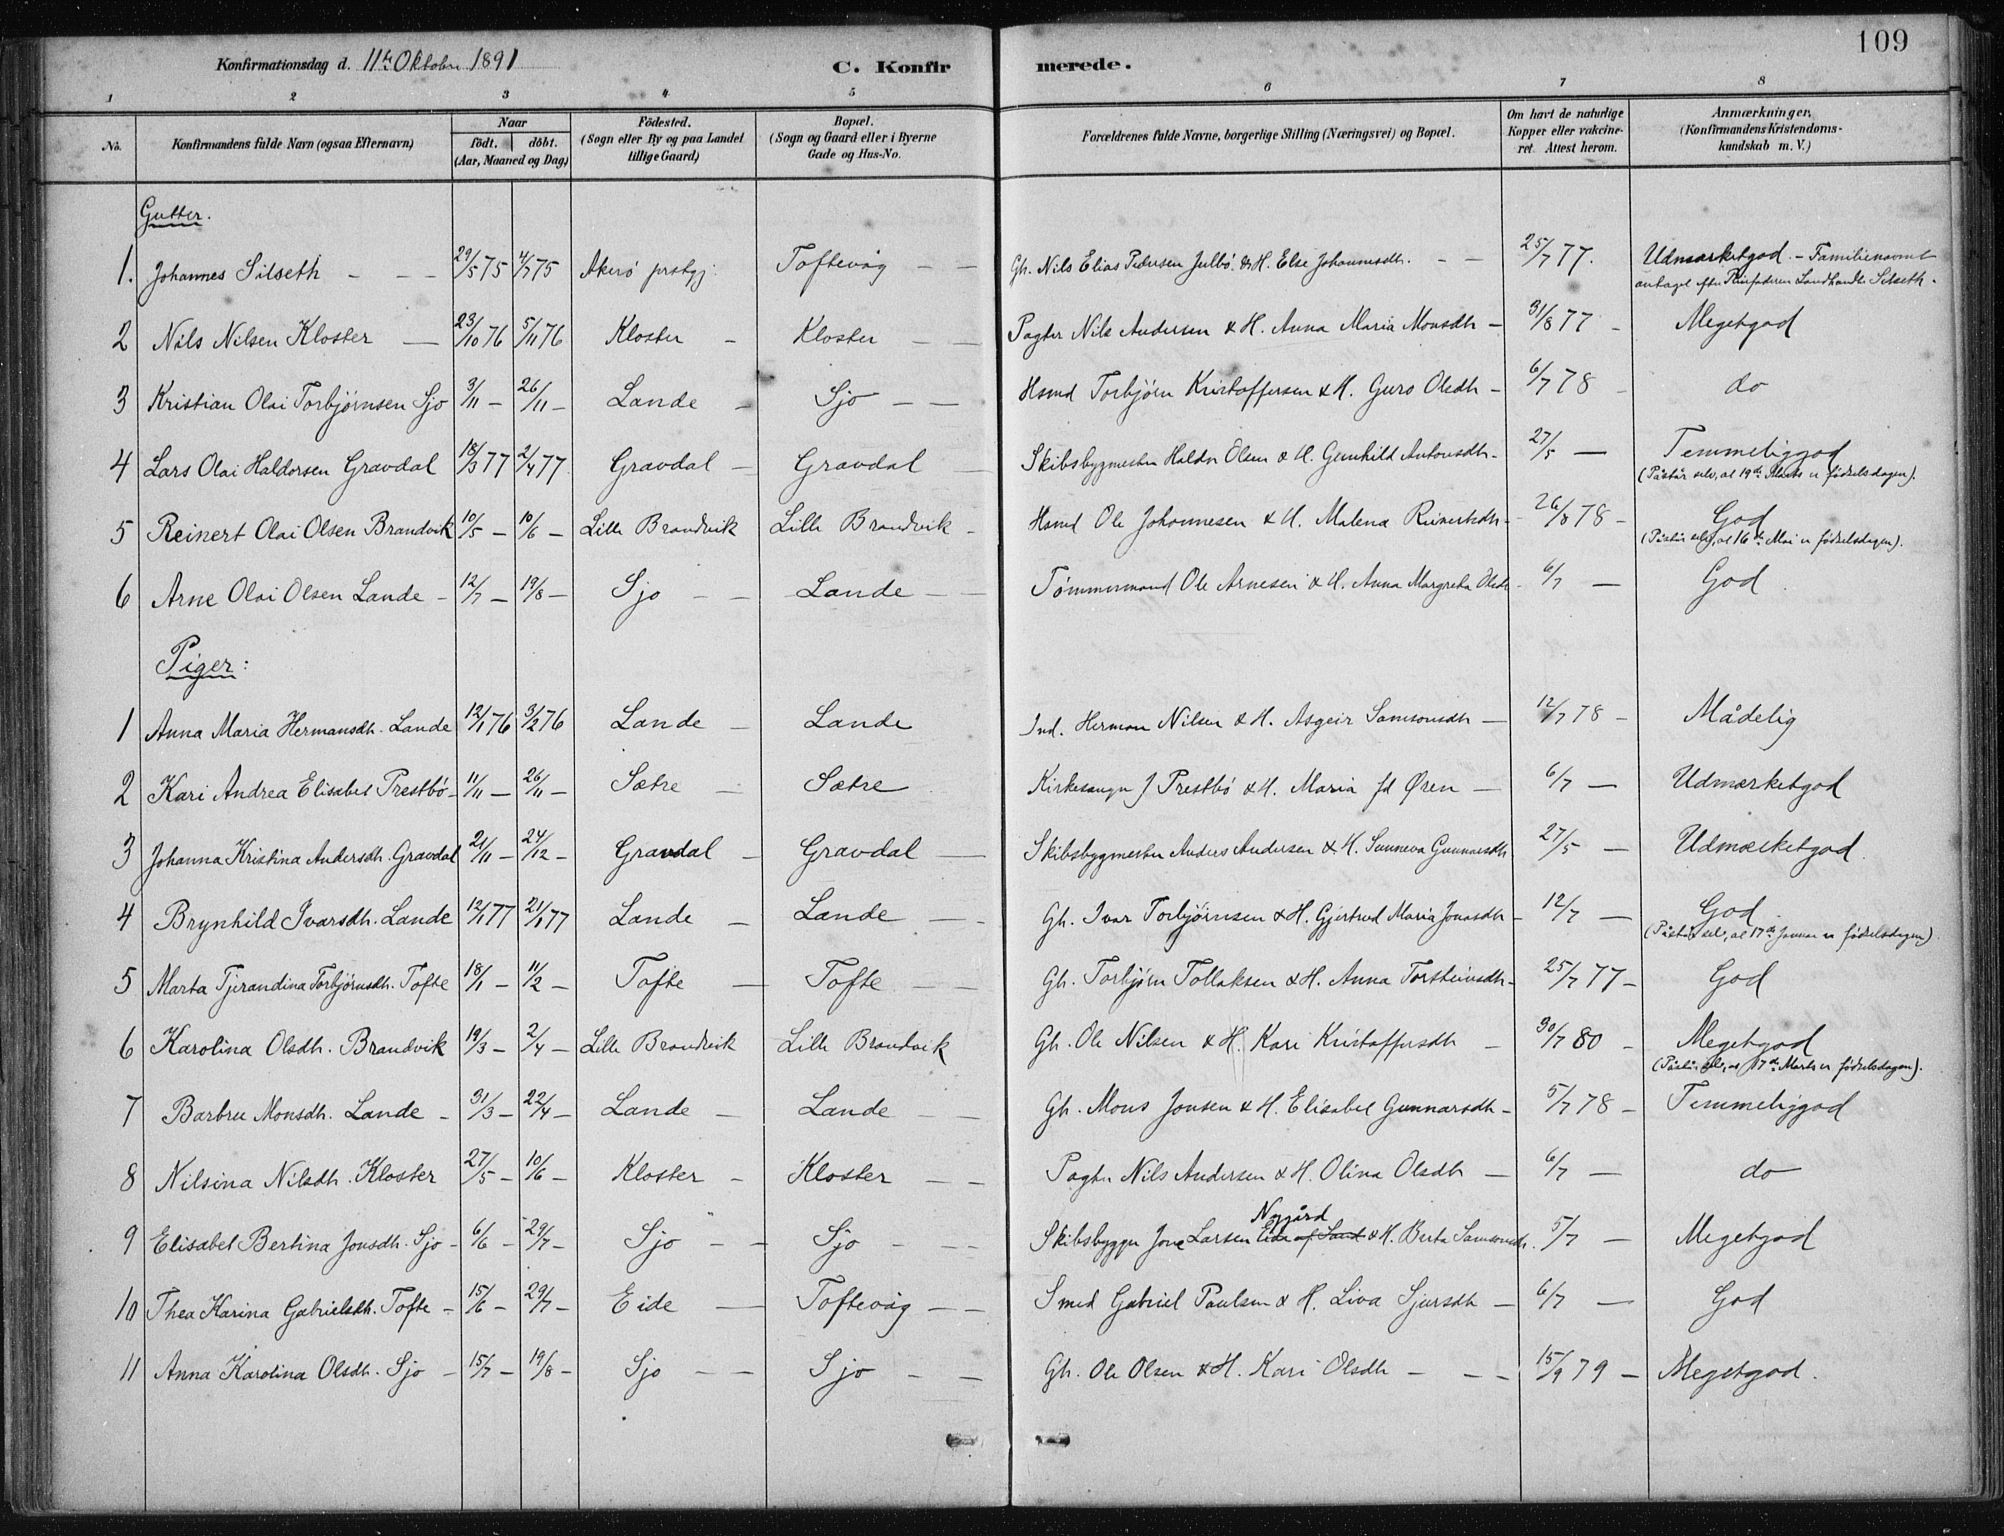 109
Konfirmationsdag d. 11te Oktober 1891 C. Konfirmerede.
1 2 3 4 5 6 7 8
No. Konfirmandens fulde Navn (ogsaa Efternavn) Naar födt. döbt. (Aar, Maaned og Dag) Födested. (Sogn eller By og paa Landet tillige Gaard) Bopæl. (Sogn og Gaard eller i Byerne Gade og Hus-No. Forældrenes fulde Navne, borgerlige Stilling (Næringsvei) og Bopæl. Om havt de naturlige Kopper eller vakcineret. Attest herom. Anmærkninger, (Konfirmandens Kristendomskundskab m. V.)
Gutter.
1. Johannes Silseth - - - 29/5 75 4/7 75 Akerö prstgj. Toftevåg - - Gh. Nils Elias Pedersen Julbö & H. Else Johannesdh. - - 25/7 77. Udmærketgod - Familienavnet
antaget efter Pleiefaderen Landhandler Silseth.
2 Nils Nilsen Kloster - 23/10 76 5/11 76 Kloster - Kloster - - Pagter Nils Andersen & H. Anna Maria Monsdh - 31/8 77 - Megetgod
3 Kristian Olai Torbjørnsen Sjo 3/11 - 26/11 - Lande - Sjo - - Hsmd Torbjørn Kristoffersen & H. Guro Olsdh - 6/7 78 - do
4 Lars Olai Haldorsen Gravdal 18/3 77 2/4 77 Gravdal - Gravdal - Skibsbygmester Haldor Olsen & H. Gunhild Antonsdh - 27/5 - Temmeliggod
(Påstår selv, at 19de Marts er födselsdagen).
5 Reinert Olai Olsen Brandvik 10/5 - 10/6 - Lille Brandvik Lille Brandvik - Hsmd Ole Johannesen & H. Malena Reinertsdh - 26/8 78 - God
(Påstår selv, at 16de Mai er födselsdagen).
6 Arne Olai Olsen Lande - 12/7 - 19/8 - Sjo - - Lande - - Tømmermand Ole Arnesen & H. Anna Margreta Olsdh - 6/7 - God
Piger:
1 Anna Maria Hermansdh. Lande 12/1 76 3/2 76 Lande - Lande Ind. Herman Nilsen & H. Asgeir Samsonsdh - 12/7 78 - Mådelig
2 Kari Andrea Elisabet Prestbö - 11/11 - 26/11 - Sætre - Sætre Kirkesanger J Prestbö & H. Maria fd Øren - 6/7 - Udmærketgod
3 Johanna Kristina Andersdh. Gravdal 21/11 - 24/12 - Gravdal - Gravdal - Skibsbygmester Anders Andersen & H. Sunneva Gunnarsdh 27/5 - Udmærketgod.
4 Brynhild Ivarsdh. Lande 12/1 77 21/1 77 Lande - Lande - - Gh. Ivar Torbjørnsen & H. Gjertrud Maria Jonasdh - 12/7 - God
(Påstår selv, at 17de Januar er födselsdagen).
5 Marta Tjerandina Torbjørnsdh. Tofte 18/1 - 11/2 - Tofte - Tofte - - Gh. Torbjørn Tollaksen & H. Anna Torsteinsdh - 25/7 77 - God
6 Karolina Olsdh. Brandvik 19/3 - 2/4 - Lille Brandvik Lille Brandvik Gh. Ole Nilsen & H. Kari Kristoffersdh - 30/7 80 - Megetgod
(Påstår selv, at 17de Marts er födselsdagen).
7 Barbru Monsdh. Lande - 31/3 - 22/4 - Lande - Lande - Gh. Mons Jonsen & H. Elisabet Gunnarsdh - 5/7 78 - Temmeliggod
8 Nilsina Nilsdh. Kloster 27/5 - 10/6 - Kloster - Kloster - - Pagter Nils Andersen & H. Olina Olsdh - 6/7 - do
Nygård
9 Elisabet Bertina Jonsdh. Sjo - 6/6 - 29/7 - Sjo - - Sjo - - - Skibsbygger Jone Larsen & H. Berta Samsonsdh. 5/7 - Megetgod
10 Thea Karina Gabrielsdh. Tofte - 15/6 - 29/7 - Eide - Toftevåg - - Smed Gabriel Paulsen & H. Liva Sjursdh - 6/7 - God
11 Anna Karolina Olsdh. Sjo - 15/7 - 19/8 - Sjo - - Sjo - - Gh. Ole Olsen & H. Kari Olsdh - - - 15/9 79 - Megetgod.